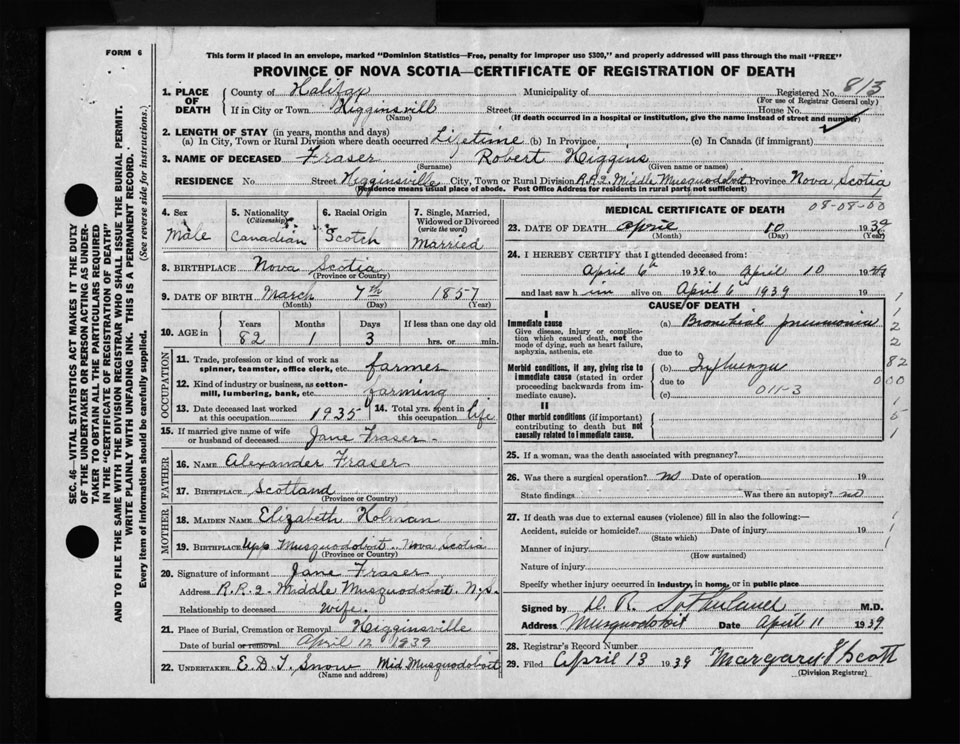 FORM 6
This form if placed in an envelope, marked "Dominion Statistics—Free, penalty for improper use $300," and properly addressed will pass through the mail "FREE"
PROVINCE OF NOVA SCOTIA—CERTIFICATE OF REGISTRATION OF DEATH
SEC. 46—VITAL STATISTICS ACT MAKES IT THE DUTY
OF THE UNDERTAKER OR PERSON ACTING AS UNDER-
TAKER TO OBTAIN ALL THE PARTICULARS REQUIRED
IN THE "CERTIFICATE OF REGISTRATION OF DEATH"
AND TO FILE THE SAME WITH THE DIVISION REGISTRAR WHO SHALL ISSUE THE BURIAL PERMIT.
WRITE PLAINLY WITH UNFADING INK. THIS IS A PERMANENT RECORD.
Every item of information should be carefully supplied. (See reverse side for instructions.)
1. PLACE OF DEATH County of Halifax Municipality of Registered No. 813
(For use of Registrar General only)
If in City or Town Higginsvill Street House No.
(Name) (If death occurred in a hospital or institution, give the name instead of street and number)
2. LENGTH OF STAY (in years, months and days)
(a) In City, Town or Rural Division where death occurred Lifetime (b) In Province (c) In Canada (if immigrant)
3. NAME OF DECEASED Fraser Robert Higgins
(Surname) (Given name or names)
RESIDENCE No. Street Higginsville City, Town or Rural Division R.R.2, Middle Musquodoboit Province Nova Scotia
(Residence means usual place of abode. Post Office Address for residents in rural parts not sufficient)
4. Sex Male
5. Nationality (Citizenship) Canadian
6. Racial Origin Scotch
7. Single, Married, Widowed or Divorced (write the word) Married
8. BIRTHPLACE Nova Scotia
(Province or Country)
9. DATE OF BIRTH March 7th 1857
(Month) (Day) (Year)
10. AGE in Years 82 Months 1 Days 3 If less than one day old hrs. or min.
OCCUPATION
11. Trade, profession or kind of work as spinner, teamster, office clerk, etc. farmer
12. Kind of industry or business, as cotton-mill, lumbering, bank, etc. farming
13. Date deceased last worked at this occupation 1935 14. Total yrs. spent in this occupation life
15. If married give name of wife or husband of deceased Jane Fraser
FATHER
16. NAME Alexander Fraser
17. BIRTHPLACE Scotland
(Province or Country)
MOTHER
18. MAIDEN NAME Elizabeth Holman
19. BIRTHPLACE Upp Musquodoboit Nova Scotia
(Province or Country)
20. Signature of informant Jane Fraser
Address R.R.2 Middle Musquodoboit. N.S.
Relationship to deceased Wife.
21. Place of Burial, Cremation or Removal Higginsville
Date of burial or removal April 12 1939
22. UNDERTAKER E.D.T. Snow Mid Musquodoboit
(Name and address)
MEDICAL CERTIFICATE OF DEATH 08-08-00
23. DATE OF DEATH April 10 1939
(Month) (Day) (Year)
24. I HEREBY CERTIFY that I attended deceased from:
April 6th 1939 to April 10 19
and last saw h im alive on April 6th 1939 19
CAUSE OF DEATH
I
Immediate cause
Give disease, injury or complication which caused death, not the mode of dying, such as heart failure, asphyxia, asthenia, etc
(a) Bronchial pneumonia
due to
Morbid conditions, if any, giving rise to immediate cause (stated in order proceeding backwards from immediate cause).
(b) Influenza
due to
(c) 011-3
II
Other morbid conditions (if important) contributing to death but not causally related to immediate cause.
1
1
2
2
82
000
1
5
1
25. If a woman, was the death associated with pregnancy?
26. Was there a surgical operation? no Date of operation 19
State findings Was there an autopsy? no
27. If death was due to external causes (violence) fill in also the following:—
Accident, suicide or homicide? Date of injury 19
(State which)
Manner of injury
(How sustained)
Nature of injury
Specify whether injury occurred in industry, in home, or in public place
1
1
1
Signed by D. R. Sutherland M.D.
Address Musquodoboit Date April 11 1939
28. Registrar's Record Number
29. Filed April 13 1939 Margary J Scott
(Division Registrar)